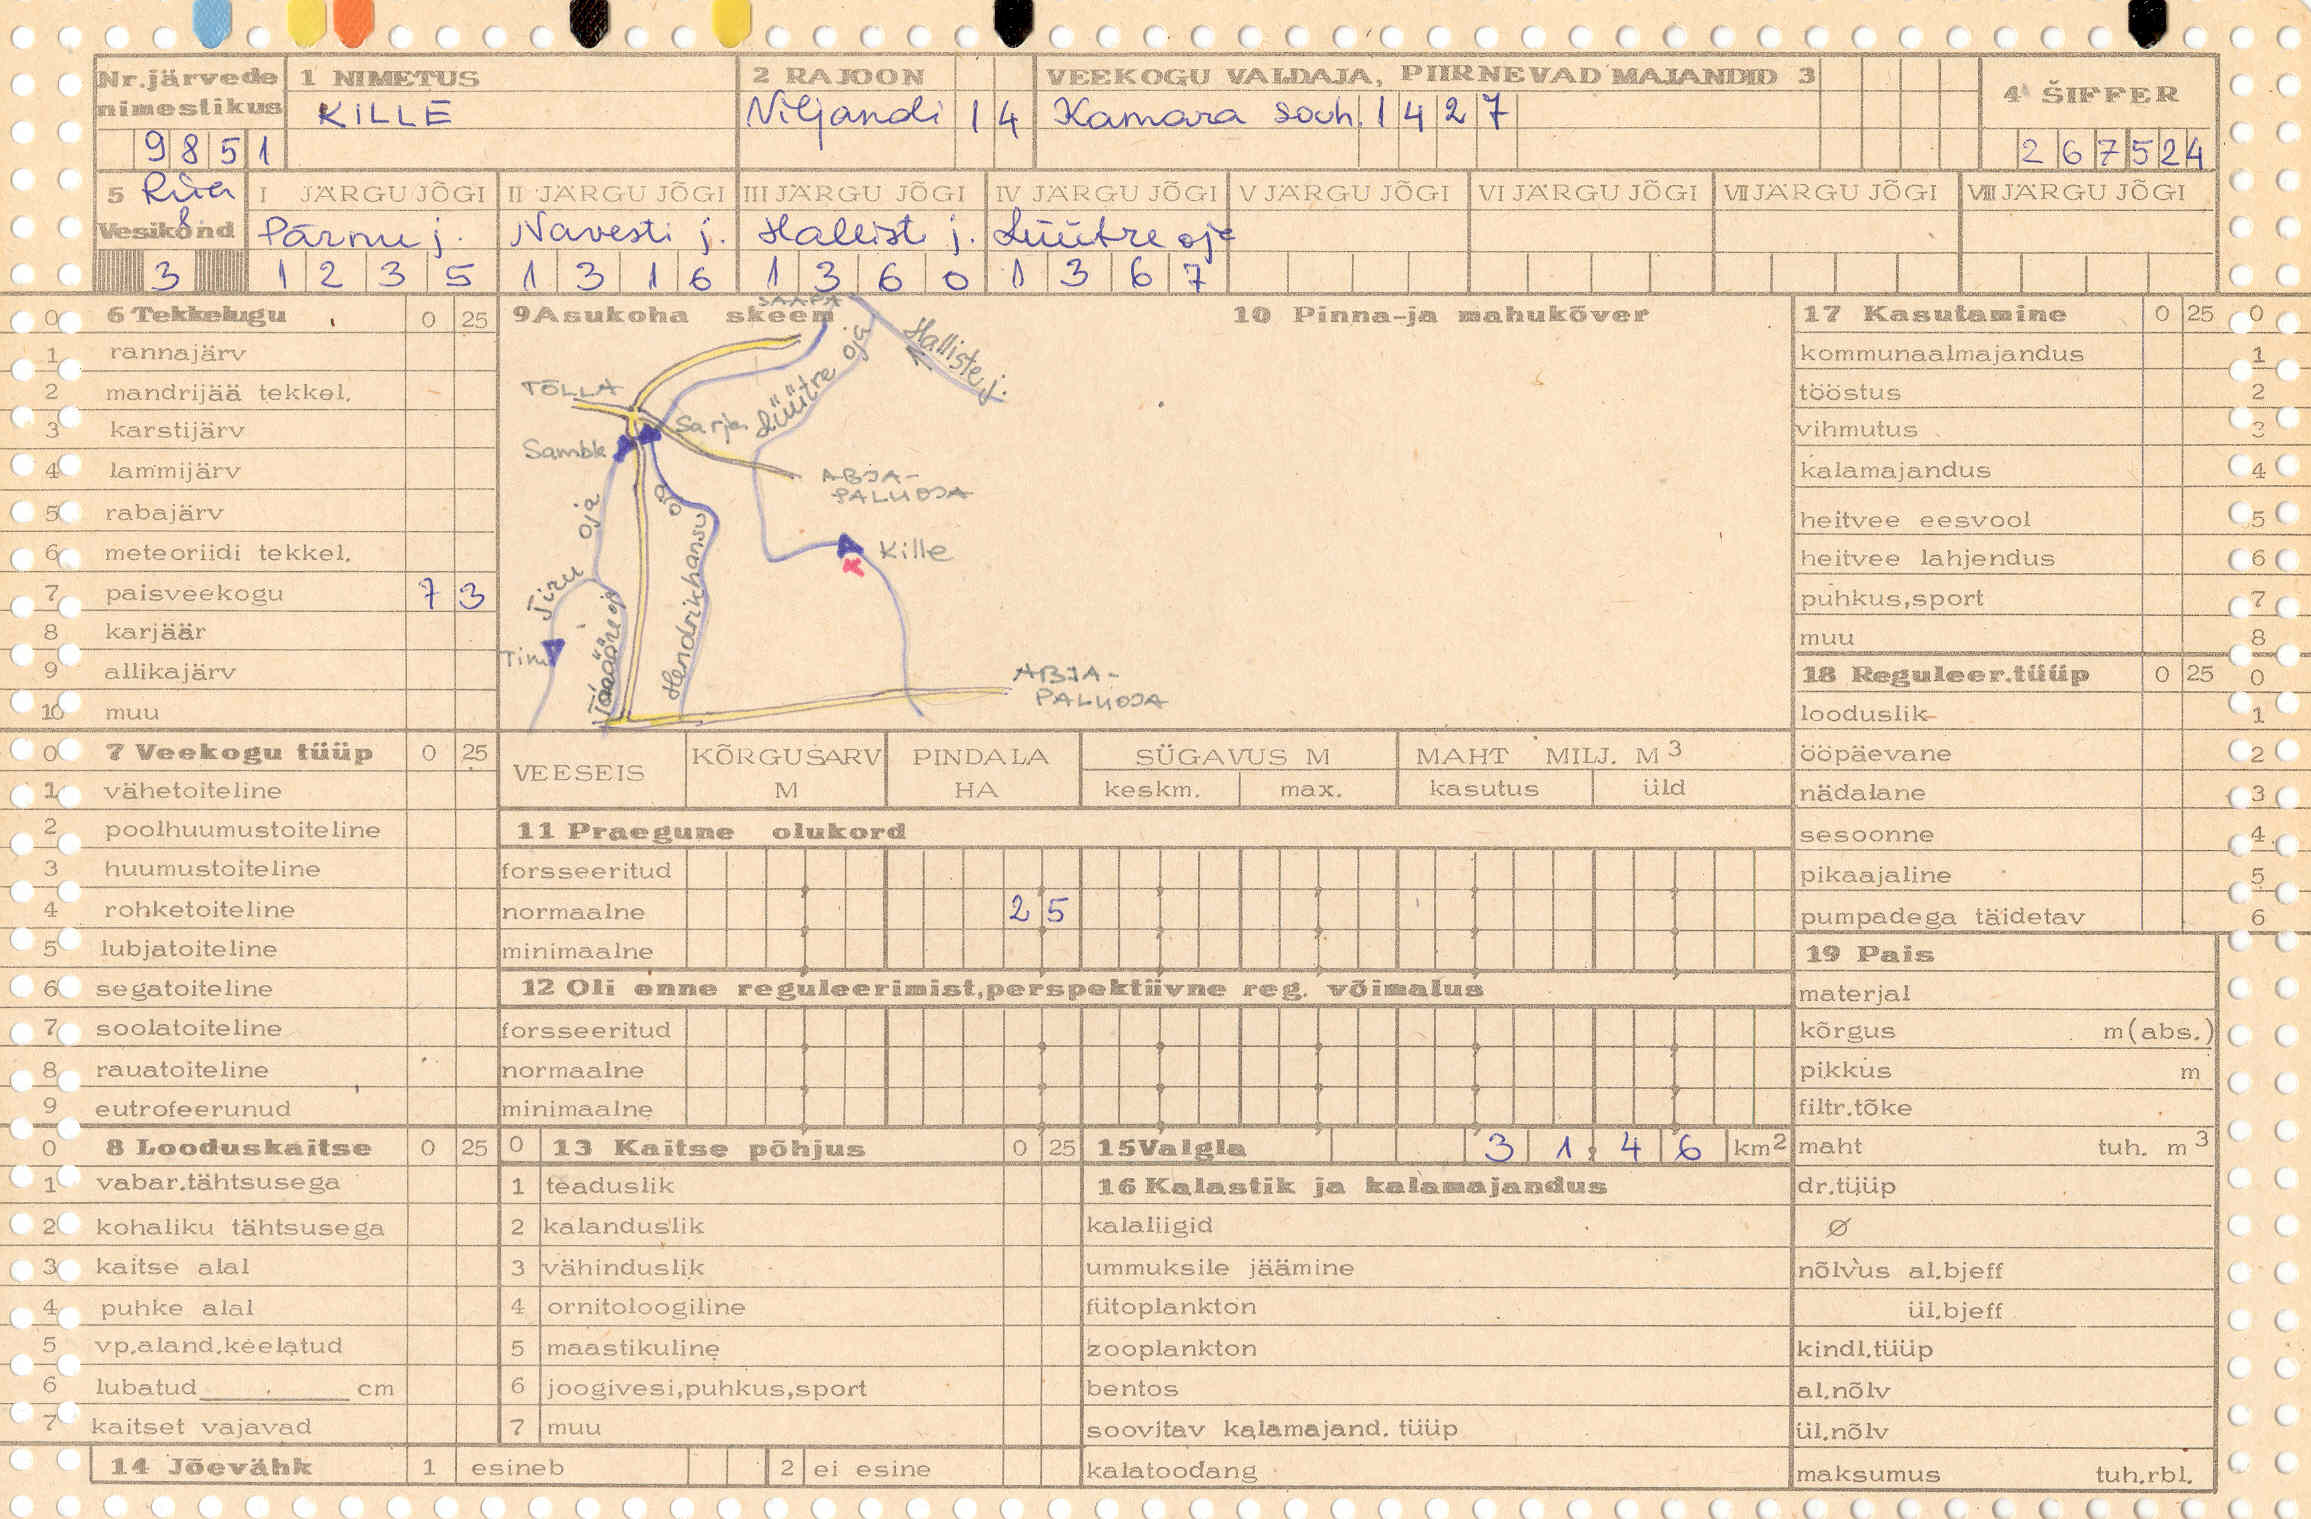 Nr.järvede nimestikus
9851
1 NIMETUS
KILLE
2 RAJOON
Viljandi 14
VEEKOGU VALDAJA, PIIRNEVAD MAJANDID 3
Kamara sovh. 1427
4 ŠIFFER
267524
5 Riia l.
Vesikond
3
I JÄRGU JÕGI
Pärnu j.
1235
II JÄRGU JÕGI
Navesti j.
1316
III JÄRGU JÕGI
Hallist j.
1360
IV JÄRGU JÕGI
Lüütre oja
1367
V JÄRGU JÕGI
VI JÄRGU JÕGI
VII JÄRGU JÕGI
VIII JÄRGU JÕGI
0 6 Tekkelugu 0 25
1 rannajärv
2 mandrijää tekkel.
3 karstijärv
4 lammijärv
5 rabajärv
6 meteoriidi tekkel.
7 paisveekogu 7 3
8 karjäär
9 allikajärv
10 muu
0 7 Veekogu tüüp 0 25
1 vähetoiteline
2 poolhuumustoiteline
3 huumustoiteline
4 rohketoiteline
5 lubjatoiteline
6 segatoiteline
7 soolatoiteline
8 rauatoiteline
9 eutrofeerunud
0 8 Looduskaitse 0 25
1 vabar.tähtsusega
2 kohaliku tähtsusega
3 kaitse alal
4 puhke alal
5 vp.aland.keelatud
6 lubatud cm
7 kaitset vajavad
9 Asukoha skeem
SAAPA
Halliste j.
Lüütre oja
TÕLLA
Sarja
Sambla
ABJA-
PALUOJA
Kille
Tiru oja
Hendrikhansu oja
ABJA-
PALUOJA
10 Pinna-ja mahukõver
VEESEIS
KÕRGUSARV M
PINDALA HA
SÜGAVUS M
keskm. max.
MAHT MILJ. M3
kasutus üld
11 Praegune olukord
forsseeritud
normaalne 2 5
minimaalne
12 Oli enne reguleerimist,perspektiivne reg. võimalus
forsseeritud
normaalne
minimaalne
0 13 Kaitse põhjus 0 25
1 teaduslik
2 kalanduslik
3 vähinduslik
4 ornitoloogiline
5 maastikuline
6 joogivesi,puhkus,sport
7 muu
14 Jõevähk 1 esineb 2 ei esine
15 Valgla 31,46 km2
16 Kalastik ja kalamajandus
kalaliigid
ummuksile jäämine
fütoplankton
zooplankton
bentos
soovitav kalamajand. tüüp
kalatoodang
17 Kasutamine 0 25 0
kommunaalmajandus 1
tööstus 2
vihmutus 3
kalamajandus 4
heitvee eesvool 5
heitvee lahjendus 6
puhkus,sport 7
muu 8
18 Reguleer.tüüp 0 25 0
looduslik 1
ööpäevane 2
nädalane 3
sesoonne 4
pikaajaline 5
pumpadega täidetav 6
19 Pais
materjal
kõrgus m(abs.)
pikkus m
filtr.tõke
maht tuh. m3
dr.tüüp
Ø
nõlvus al.bjeff
ül.bjeff
kindl.tüüp
al.nõlv
ül.nõlv
maksumus tuh.rbl.